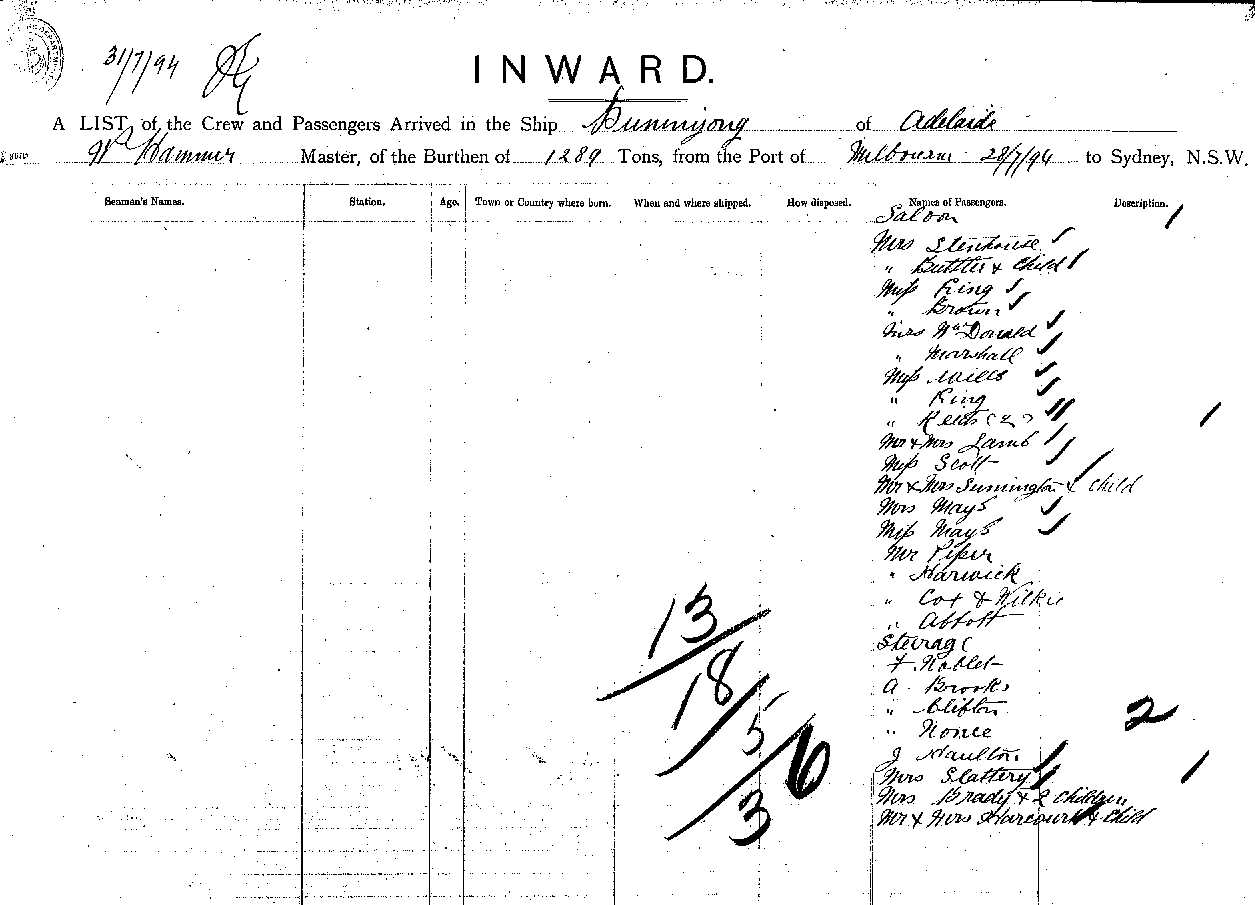 31/7/94
INWARD.
A LIST, of the Crew and Passengers Arrived in the Ship Buninyong of Adelaide
Wm Hammer Master, of the Burthen of 1289 Tons, from the Port of Melbourne 28/7/94 to Sydney, N.S.W.
Seamen's Names. Station. Age. Town or Country where born. When and where shipped. How disposed. Names of Passengers. Description.
Saloon 1
Mrs Stenhouse
" Buttler & Child
Miss King
" Brown
Mrs McDonald
" Marshall
Miss Mills
" King
" (2) 1
Mr & Mrs Lamb
Miss Scott
Mr & Mrs & Child
Mrs Mays
Miss Mays
Mr Piper
" Harwick
" Cox & Wilkie
" Abbott
13
Steerage
F. Noblet
18
A. Brooks
" Clifton
2
" Nonee
5
6
J
Mrs Slattery 1
Mrs Brady & 2 Children
3
Mr & Mrs Harcourt & Child